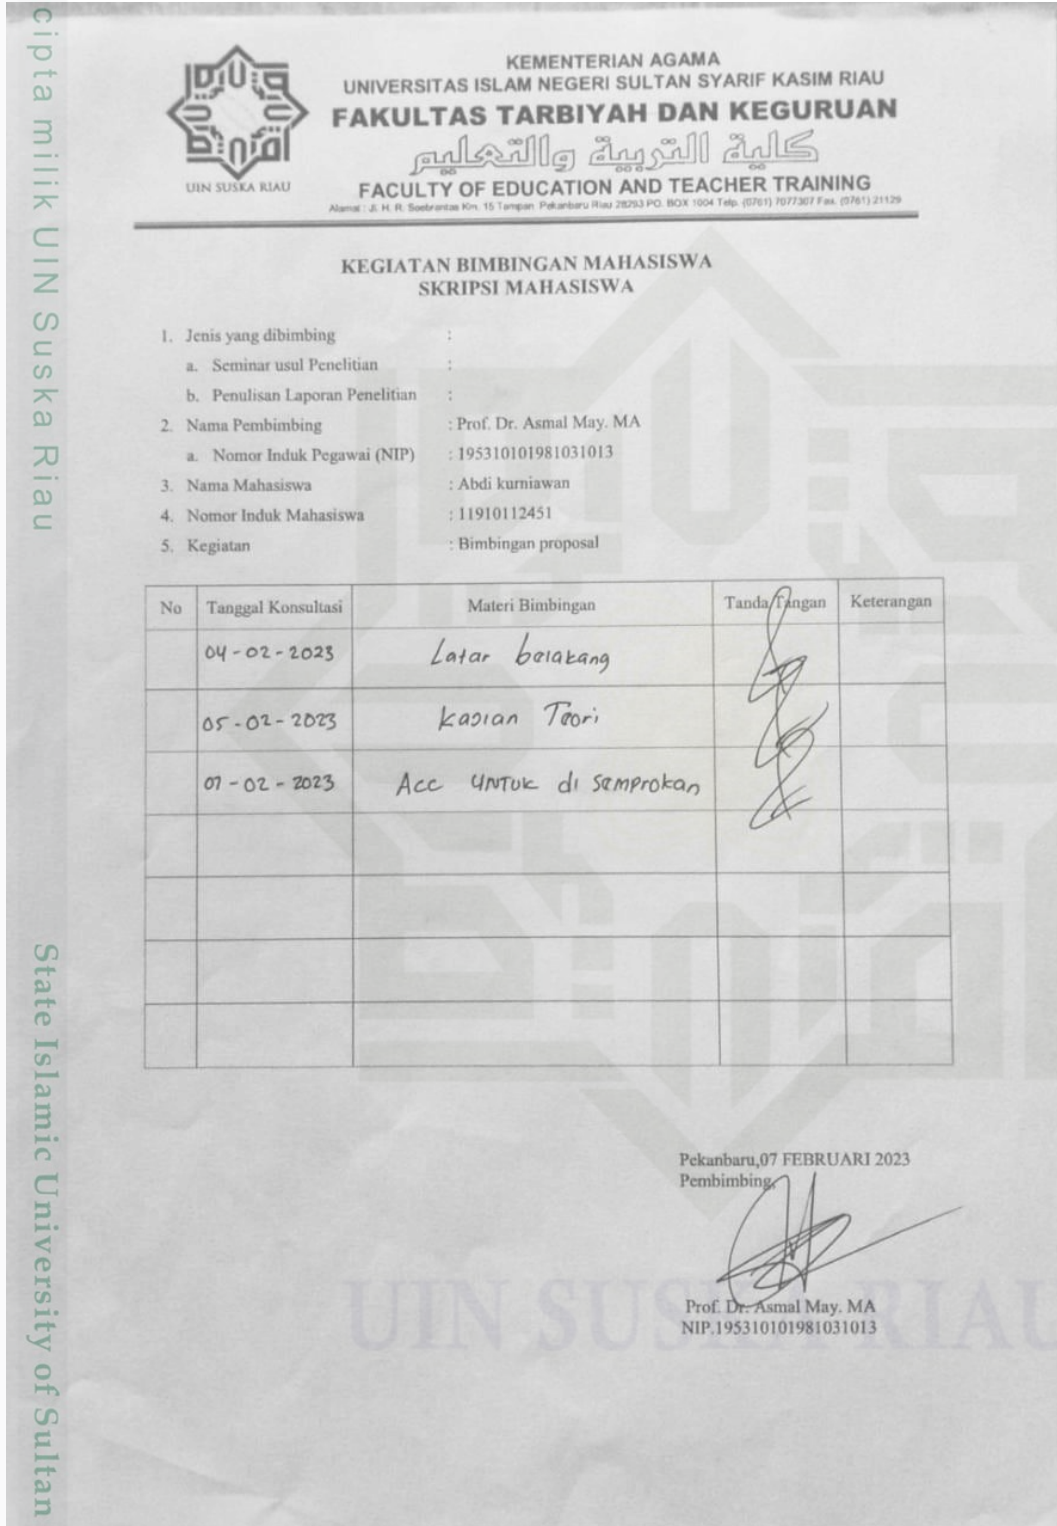 cipta milik UIN Suska Riau
State Islamic University of Sultan
UIN SUSKA RIAU
KEMENTERIAN AGAMA
UNIVERSITAS ISLAM NEGERI SULTAN SYARIF KASIM RIAU
FAKULTAS TARBIYAH DAN KEGURUAN
كلية التربية والتعليم
FACULTY OF EDUCATION AND TEACHER TRAINING
Alamat : Jl. H. R. Soebrantas Km. 15 Tampan Pekanbaru Riau 28293 PO. BOX 1004 Telp. (0761) 7077307 Fax. (0761) 21129
KEGIATAN BIMBINGAN MAHASISWA
SKRIPSI MAHASISWA
1. Jenis yang dibimbing :
a. Seminar usul Penelitian :
b. Penulisan Laporan Penelitian :
2. Nama Pembimbing : Prof. Dr. Asmal May. MA
a. Nomor Induk Pegawai (NIP) : 195310101981031013
3. Nama Mahasiswa : Abdi kurniawan
4. Nomor Induk Mahasiswa : 11910112451
5. Kegiatan : Bimbingan proposal
No Tanggal Konsultasi Materi Bimbingan Tanda Tangan Keterangan
04-02-2023 Latar belakang
05-02-2023 Kasian Teori
07-02-2023 Acc UNTUK di semprokan
Pekanbaru,07 FEBRUARI 2023
Pembimbing,
Prof. Dr. Asmal May. MA
NIP.195310101981031013
UIN SUSKA RIAU